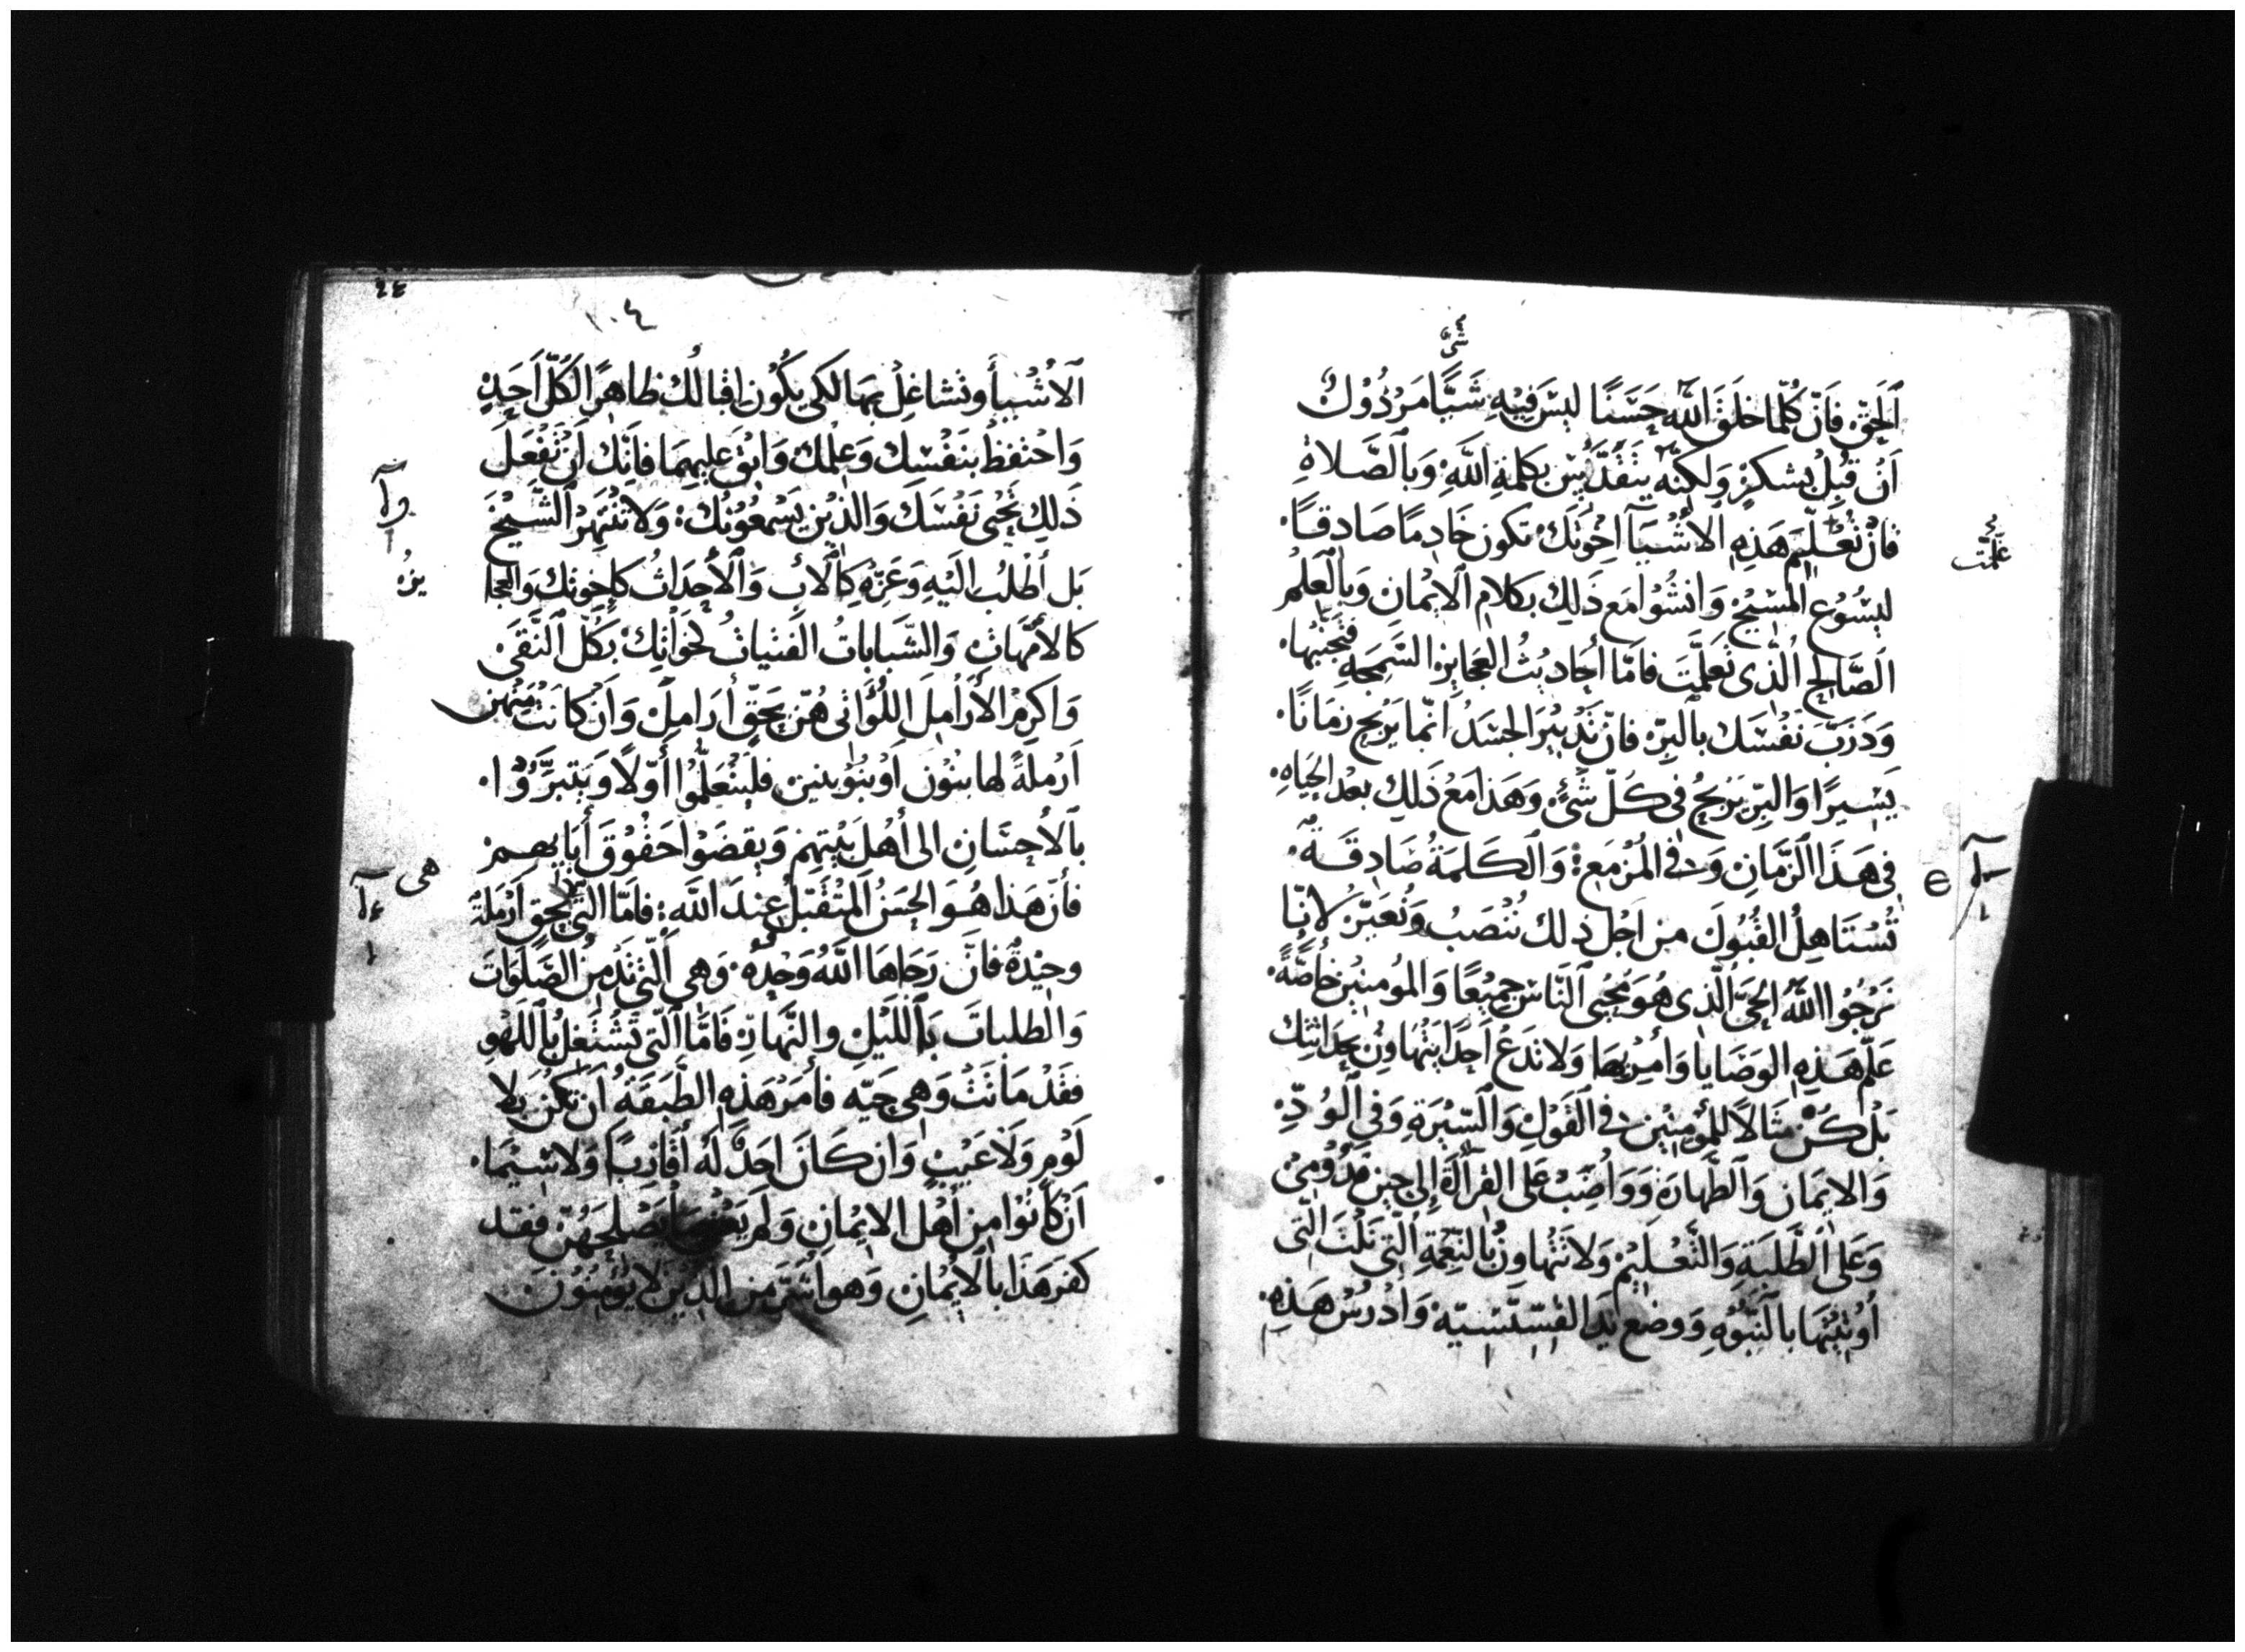 شئ
ٱلحَقّ فَانّ كُلّما خلَقَ اللّه حَسَنًا ليسَ فيْهِ شَيًّا مَرْذُوْل
اَنْ قُبِلْ بشكرٍ وَلكِنّه يتَقَدَّسُ بكلمةِ اللَّهِ وَبالصَّلاةِ
فانْ تُعَلِّمَ هَذِهِ الأشْيَآ اخْوَتكَ تكون خَادِمًا صَادِقًا
علّمت
ليسُوْع المَسِيْح وَانشُوْا مَع ذَلِكَ بكلامِ الايْمَانِ وَبالْعِلْم
الصَّالحِ الَّذى تعَلَّمْتَ فامّا أحاديْثُ العَجايز السَّمِجَهِ فتجَنّبها
وَدَرِّبَ نَفْسَك بالبِرّ فانّ تَدْبيْرَ الجسَدُ انّما يَرْبح زمَانًا
يَسِيرًا وَالبِرّ يَرْبحُ فى كُلّ شَئٍ وَهَذا مَعْ ذَلِكَ بعْد الحَيَاهِ
فى هَذَا الزّمَانِ وَفى المُزْمَع وَالكَلمَةُ صَادِقَةٌ
تُسْتَاهِلُ القُبُولَ من اَجْل ذلك نُنْصَبُ وَنُعَيّرُ لانّا
نَرْجُوْا اللَّهَ الحَىَّ الَّذِى هُوَ مُحْيى النَّاسَ جميْعًا وَالمُؤمنيْن خاصَّةً
عَلّم هَذِهِ الوَصَايا وَأمُرْ بهَا وَلا تدَعْ اَحدًا يَتْهَاوَنُ بحدَاثتك
بَلْ كُنْ مثَالاً للمُؤمِنيْن فى القَوْلِ وَالسِّيْرَةِ وَفى الوُدِّ
وَالايمَان وَالطَّهَارَةِ وَوَاضِبْ عَلى القرآةَ إِلى حِيْنِ قدُوْمِى
وَعَلى الطَّلِبَةِ وَالتَّعْليْم وَلا تَتْهاوَنْ بالنِّعْمَةِ الَّتِى نَلْتَ الَّتى
أوْتيْتَهَا بالنّبُوَّهِ وَوضع يَدِ القِسّيْسيّة وَادْرُسْ هَذِهِ
١٠٤
الأشْيَأ وتَشاغِلْ بهَا لكى يكُون اقبالُكَ ظاهِرًا لكُلّ اَحَدٍ
وَاحْتفِظْ بنَفْسِك وَعلْمك وَابْقَ عليهِمَا فانّك اَنْ تَفْعَل
ذَلِكَ تُحْيى نَفْسَكَ وَالّذيْن يَسْمعُوْنك وَلا تَنْتَهِرْ الشّيْخَ
بَل اُطْلُبْ الَيْهِ وَعَزّهِ كالْأب وَالْأحْدَاثُ كإخوتك وَالعجا
يزُه
كالأمَّهاتِ وَالشّاباتُ الفتْياتُ كخوَاتِك بكُلّ النَّقى
وَاَكرِمْ الأرَامِلَ اللوَاتى هُنّ بحَقّ أرَامِل وَاَنْ كانَتْ مِنْهن
اَرْملَةً لها بنُوْن اَوْ بنُوْ بنين فليتعَلّمُوْا أوّلاً وَيتبرَّرُوْا
بالأحْسَانِ الى أهْل بيْتهِم وَيقضَوْا حقُوْقَ أبَايهم
فأنّ هَذا هُوَ الحسَنُ المتُقَبّل عِندَ اللَّه فامّا التى بحقٍ اَرْملَةٌ
هى
وحِيْدةً فانّ رَجاهَا اللَّهُ وَحْدهُ وَهى الّتى تَدْمنُ الصَّلَوَات
وَالطلباتَ باللّيَل والنَّهار فامّا الّتى تَشْتَغِلُ باللّهْو
فقَدْ مَاتَتْ وَهى حَيّه فأمَرْ هَذِهِ الطَّبقَةُ اَن تكُنْ بلا
لَوْمٍ وَلا عَيْبٍ وَان كَانَ احَدٌ لهُ أقَاربًا وَلا سِيّمَا
اَنْ كانُوْا مِن أهْل الايْمَانِ وَلم يَعْتنى بما يصْلحَهُنّ فقد
كفرَ هَذَا بالأيْمَانِ وَهو اَشرّ مِن الّذيْن لا يُؤمِنُوْنَ